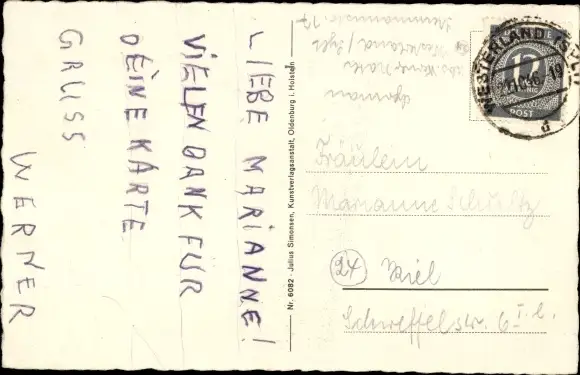 LIEBE MARIANNE!
VIELEN DANK FÜR
DEINE KARTE
GRUSS
WERNER
Nr. 6082 - Julius Simonsen, Kunstverlagsanstalt, Oldenburg i. Holstein
WESTERLAND (SYLT)
12
POST
d
Fräulein
Marianne Schultz
24 Kiel
Scheffelstr. 6 I. l.